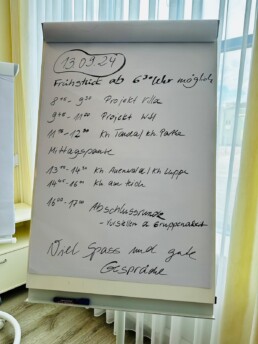 13.09.24
Frühstück ab 6³⁰ Uhr möglich
8⁰⁰ - 9³⁰ Projekt Villa
9⁴⁰ - 11⁰⁰ Projekt
11¹⁰ - 12⁰⁰ Kh / Kh Parthe
Mittagspause
13⁰⁰ - 14³⁰ Kh Auenwald / Kh Luppe
14⁴⁵ - 16⁰⁰ Kh am Teich
16⁰⁰ - 17⁰⁰ Abschlussrunde
- Gruppenarbeit
Viel Spass und gute
Gespräche